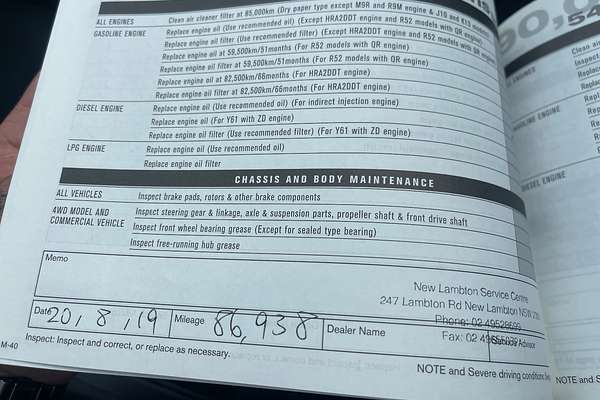 ALL ENGINES Clean air cleaner filter at 85,000km (Dry paper type except M9R and R9M engine & J10 and K13
GASOLINE ENGINE Replace engine oil (Use recommended oil) (Except HRA2DDT engine and R52 models with QR engine)
Replace engine oil filter (Use recommended filter) (Except HRA2DDT engine and R52 models with QR
Replace engine oil at 59,500km/51months (For R52 models with QR engine)
Replace engine oil filter at 59,500km/51months (For R52 models with QR engine)
Replace engine oil at 82,500km/66months (For HRA2DDT engine)
Replace engine oil filter at 82,500km/66months (For HRA2DDT engine)
DIESEL ENGINE Replace engine oil (Use recommended oil) (For indirect injection engine)
Replace engine oil (For Y61 with ZD engine)
Replace engine oil filter (Use recommended filter) (For Y61 with ZD engine)
LPG ENGINE Replace engine oil (Use recommended oil)
Replace engine oil filter
CHASSIS AND BODY MAINTENANCE
ALL VEHICLES Inspect brake pads, rotors & other brake components
4WD MODEL AND COMMERCIAL VEHICLE Inspect steering gear & linkage, axle & suspension parts, propeller shaft & front drive shaft
Inspect front wheel bearing grease (Except for sealed type bearing)
Inspect free-running hub grease
Memo
New Lambton Service Centre
247 Lambton Rd New Lambton NSW
Phone: 02 49528699
Fax: 02
Date 20, 8, 19 Mileage 86,938 Dealer Name Service Advisor
M-40 Inspect: Inspect and correct, or replace as necessary.
NOTE and Severe driving conditions:
90,0
54
Clean air
Inspect
ENGINE
DIESEL ENGINE
NOTE and S